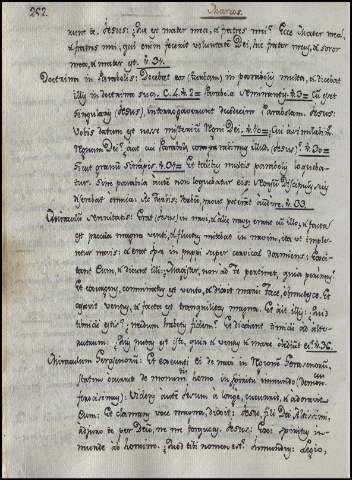 252. Marcus.
runt te. Jesus: Quæ est mater mea, et fratres mei? Ecce Mater mea,
et fratres mei, qui enim fecerit voluntatẽ Dei, hic frater meus, et soror
mea, et mater est. v. 34.
Doctrina in Parabolis: Docebat eos in parabolis multa, et dicebat
illis in doctrina sua. C. 4. v. 2 = Parabola seminantis. v. 3 = Cũ esset
singularis (Jesus), interrogaverunt duodecim Parabolam. Jesus:
Vobis datum est nosse mysterium Regni Dei. v. 10 = Cui assimilabimus
Regnum Dei? aut cui Parabolæ comparabimus illud (Jesus)? v. 30 =
Sicut granum sinapis. v. 31 = Et talibus multis parabolis loqueba-
tur. Sine parabola autẽ non loquebatur eis: seorsũ Discipulis suis
disserebat omnia. prout poterãt audire. v. 33.
erat Jesus in navi, et aliæ naves erant cũ illo; et facta
est procella magna venti, et fluctus mittebat in navim, ita ut imple-
retur navis: et erat ipse in puppi super cervical dormiens. Exci-
tant Eum, et dicunt illi: Magister, non ad Te pertinet, quia perimus?
Et exurgens, comminatus est vento, et dixit mari: Tace, obmutesce. Et
cessavit ventus, et facta est tranquillitas magna. Et ait illis: Quid
timidi estis? necdum habetis fidem? Et dicebant ad alte-
rutrum: Quis putas est iste, quia et ventus et mare obediũt ei? v. 36.
Miraculum Gerasenorũ: Et exeunti Ei de navi in Gerasenorũ,
statim occurrit de monum. homo in spiritu immundo
Videns autẽ Jesum a longe, cucurrit, et adoravit
Eum: Et clamans voce magna, dixit: Jesu, fili Dei Altissimi,
adjuro te per Deũ, ne me torqueas. Jesus: Exi spiritus im-
munde ab homine. Quod tibi nomen est? Legio,